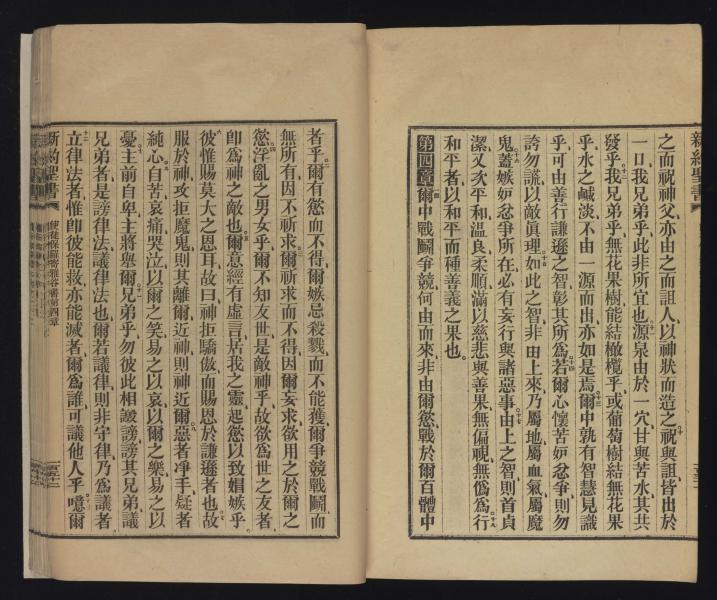 新約聖書
之而祝神父亦由之而詛人以神狀而造之祝與詛皆出於
一口我兄弟乎此非所宜也源泉由於一穴甘與苦水其共
發乎我兄弟乎無花果樹能結橄欖乎或葡萄樹結無花果
乎水之鹹淡不由一源而出亦如是焉爾中孰有智慧見識
乎可由善行謙遜之智彰其所爲若爾心懷苦妒忿爭則勿
誇勿謊以敵眞理如此之智非由上來乃屬地屬血氣屬魔
鬼蓋嫉妒忿爭所在必有妄行與諸惡事由上之智則首貞
潔又次平和溫良柔順滿以慈悲與善果無偏視無僞爲行
和平者以和平而種善義之果也
第四章爾中戰鬭爭競何由而來非由爾慾戰於爾百體中
者乎爾有慾而不得爾嫉忌殺戮而不能獲爾爭競戰鬭而
無所有因不祈求爾祈求而不得因爾妄求欲用之於爾之
慾淫亂之男女乎爾不知友世是敵神乎故欲爲世之友者
卽爲神之敵也爾意經有虛言居我之靈起慾以致娼嫉乎
彼惟賜莫大之恩耳故曰神拒驕傲而賜恩於謙遜者也故
服於神攻拒魔鬼則其離爾近神則神近爾惡者淨手疑者
純心自苦哀痛哭泣以爾之笑易之以哀以爾之樂易之以
憂主前自卑主將舉爾兄弟乎勿彼此相譭謗謗其兄弟議
兄弟者是謗律法議律法也爾若議律則非守律乃爲議者
立律法者惟卽彼能救亦能滅者爾爲誰可議他人乎噫爾
新約聖書